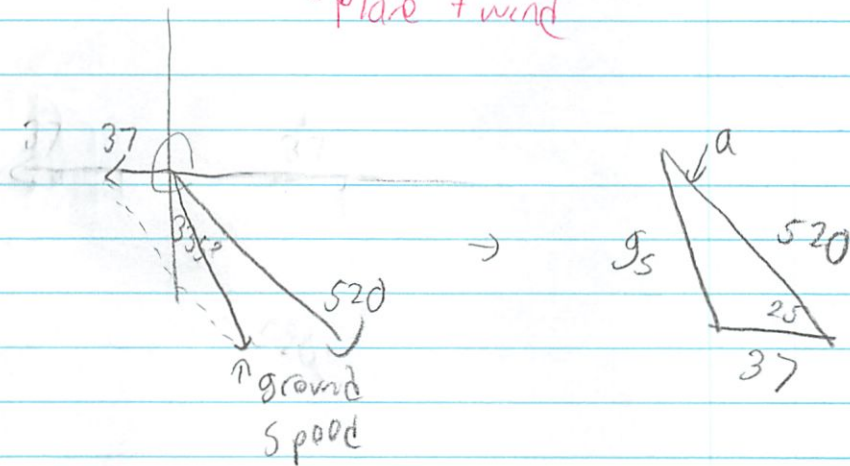 Plane + wind
37
335°
520
ground
Speed
→
a
gs
520
25
37